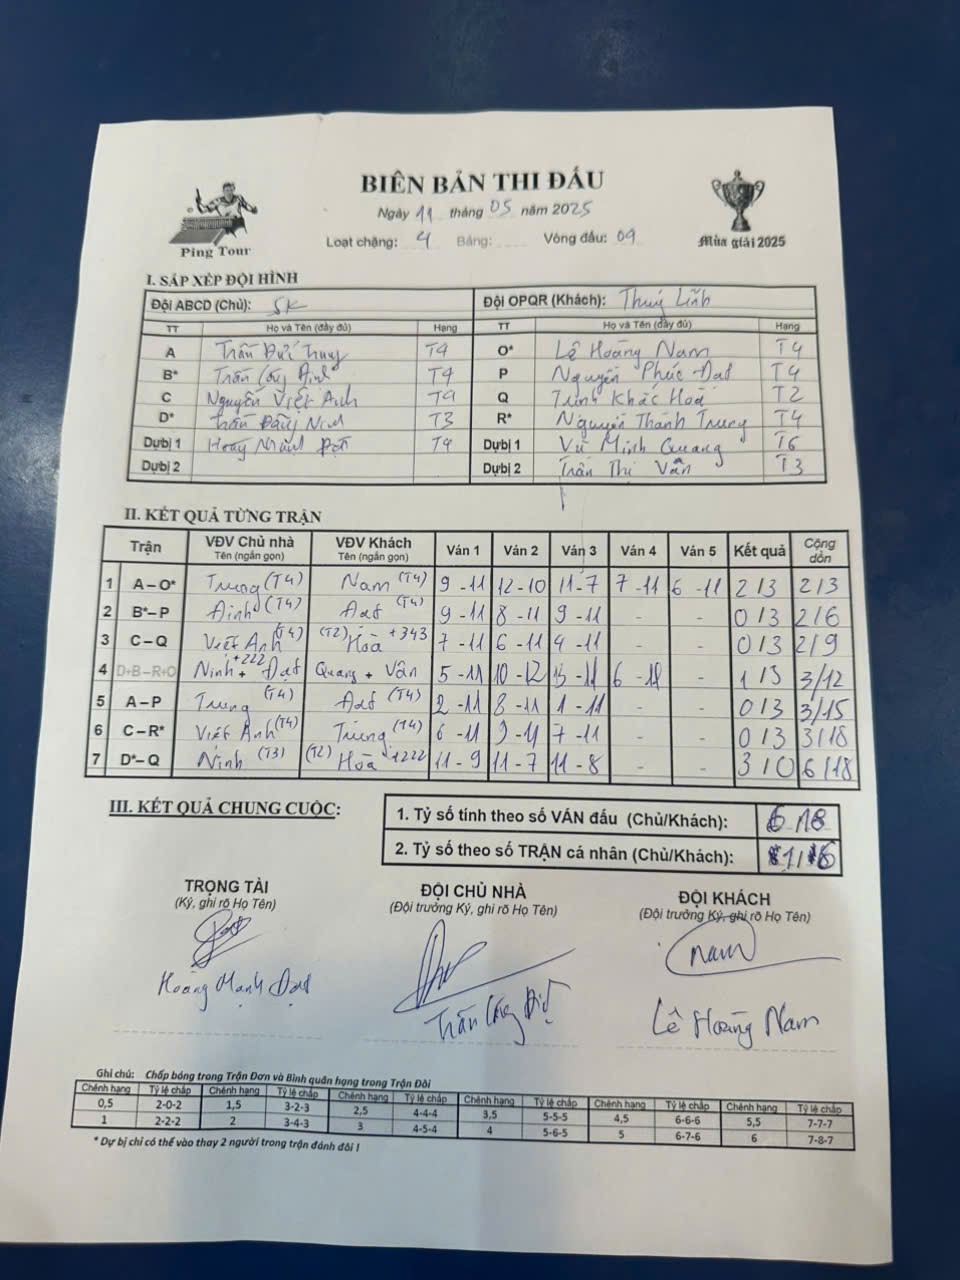 BIÊN BẢN THI ĐẤU
Ngày 11 tháng 05 năm 2025
Loạt chặng: 4 Bảng: Vòng đấu: 09
Ping Tour
Mùa giải 2025
I. SẮP XẾP ĐỘI HÌNH
Đội ABCD (Chủ): SK Đội OPQR (Khách): Thuỳ Linh
TT Họ và Tên (đầy đủ) Hạng TT Họ và Tên (đầy đủ) Hạng
A Trần Đức Trung T4 O* Lê Hoàng Nam T4
B* Trần Công Định T4 P Nguyễn Phúc Đạt T4
C Nguyễn Việt Anh T4 Q Trịnh Khắc Hoà T2
D* Trần Đăng Ninh T3 R* Nguyễn Thành Trung T4
Dự bị 1 Hoàng Mạnh Đạt T4 Dự bị 1 Vũ Minh Quang T6
Dự bị 2 Dự bị 2 Trần Thị Vân T3
II. KẾT QUẢ TỪNG TRẬN
Trận VĐV Chủ nhà Tên (ngắn gọn) VĐV Khách Tên (ngắn gọn) Ván 1 Ván 2 Ván 3 Ván 4 Ván 5 Kết quả Cộng dồn
1 A – O* Trung (T4) Nam (T4) 9 - 11 12 - 10 11 - 7 7 - 11 6 - 11 2 / 3 2 / 3
2 B* – P Định (T4) Đạt (T4) 9 - 11 8 - 11 9 - 11 - - 0 / 3 2 / 6
3 C – Q Việt Anh (T4) (T2) Hoà +343 7 - 11 6 - 11 4 - 11 - - 0 / 3 2 / 9
4 D+B – R+O Ninh +222 + Đạt Quang + Vân 5 - 11 10 - 12 13 - 11 6 - 11 - 1 / 3 3 / 12
5 A – P Trung (T4) Đạt (T4) 2 - 11 8 - 11 1 - 11 - - 0 / 3 3 / 15
6 C – R* Việt Anh (T4) Trung (T4) 6 - 11 9 - 11 7 - 11 - - 0 / 3 3 / 18
7 D* – Q Ninh (T3) (T2) Hoà +222 11 - 9 11 - 7 11 - 8 - - 3 / 0 6 / 18
III. KẾT QUẢ CHUNG CUỘC:
1. Tỷ số tính theo số VÁN đấu (Chủ/Khách): 6 / 18
2. Tỷ số theo số TRẬN cá nhân (Chủ/Khách): 1 / 6
TRỌNG TÀI ĐỘI CHỦ NHÀ ĐỘI KHÁCH
(Ký, ghi rõ Họ Tên) (Đội trưởng Ký, ghi rõ Họ Tên) (Đội trưởng Ký, ghi rõ Họ Tên)
Nam
Hoàng Mạnh Đạt Trần Công Định Lê Hoàng Nam
Ghi chú: Chấp bóng trong Trận Đơn và Bình quân hạng trong Trận Đôi
Chênh hạng Tỷ lệ chấp Chênh hạng Tỷ lệ chấp Chênh hạng Tỷ lệ chấp Chênh hạng Tỷ lệ chấp Chênh hạng Tỷ lệ chấp Chênh hạng Tỷ lệ chấp
0,5 2-0-2 1,5 3-2-3 2,5 4-4-4 3,5 5-5-5 4,5 6-6-6 5,5 7-7-7
1 2-2-2 2 3-4-3 3 4-5-4 4 5-6-5 5 6-7-6 6 7-8-7
* Dự bị chỉ có thể vào thay 2 người trong trận đánh đôi !